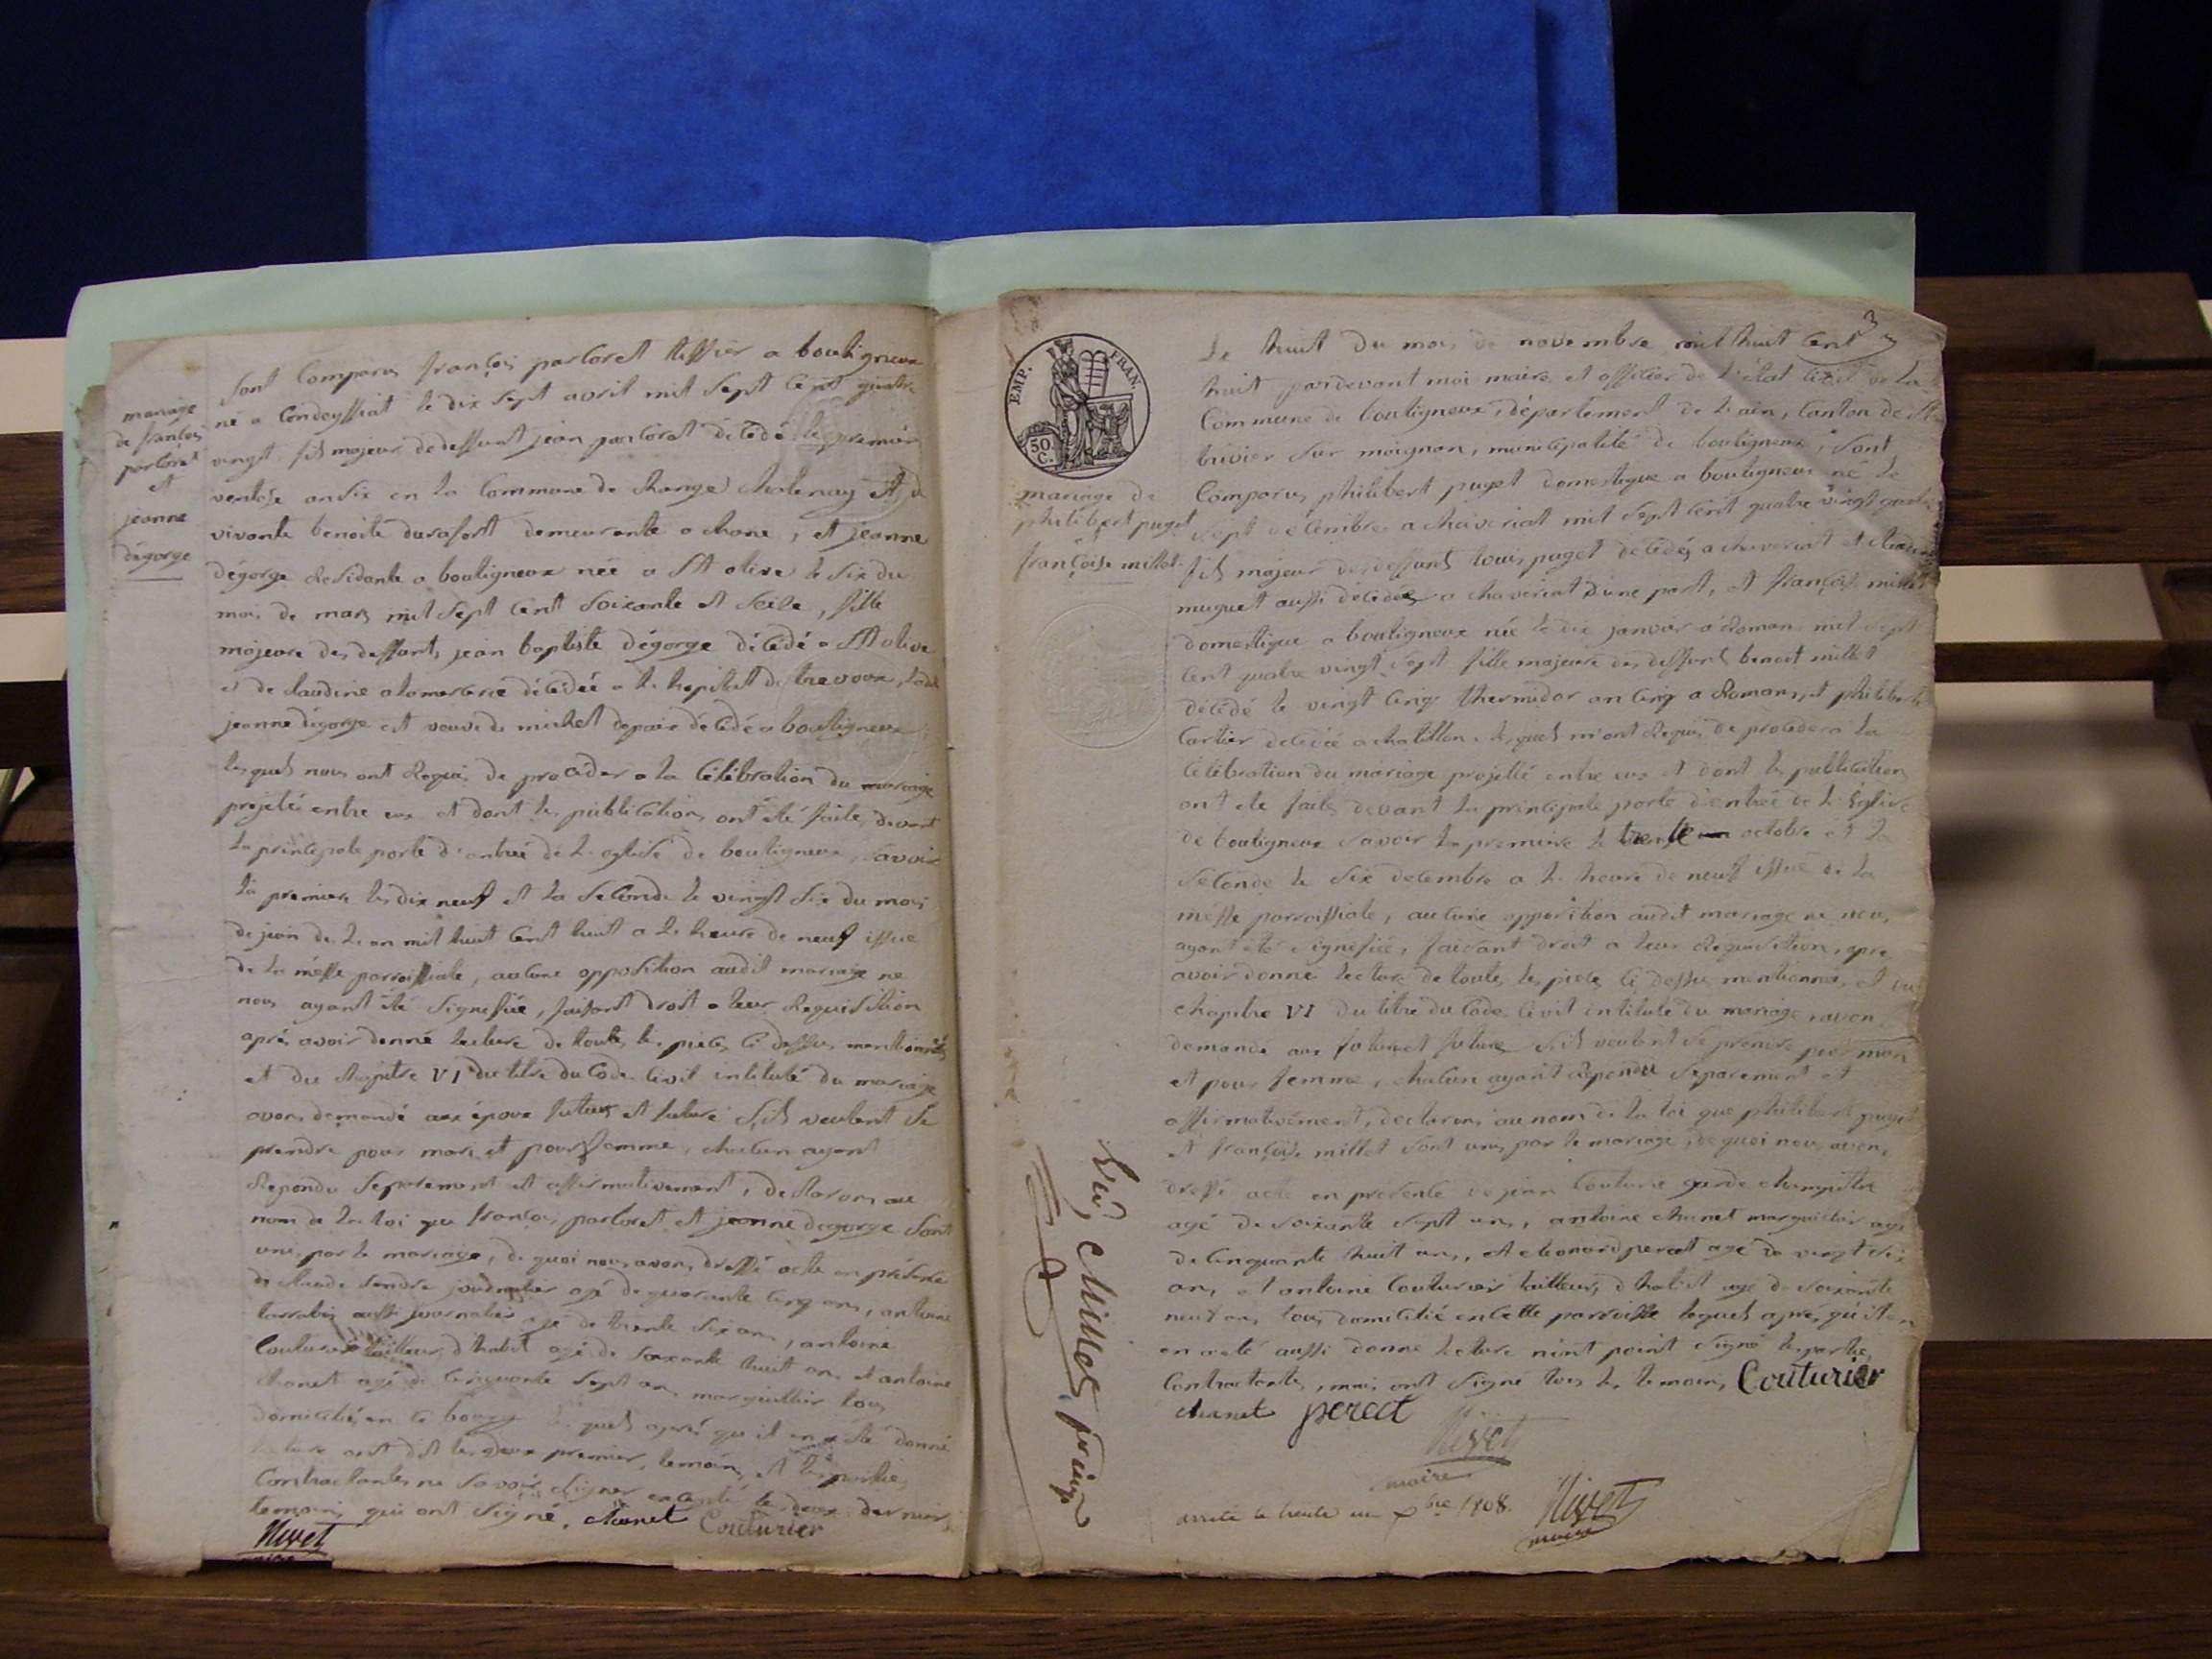 mariage
de françois
parloret
et
jeanne
dégorge
sont comparus françois parloret tissier a bouligneux
né a condeyssiat le dix sept avril mil sept cent quatre
vingt fils majeur de deffunt jean parloret décédé le premier
ventose an six en la commune de change chatenay et de
vivante benoite durafort demeurante a chane, et jeanne
dégorge residante a bouligneux née a St olive le six du
mois de mars mil sept cent soixante et seize, fille
majeure des deffunts jean baptiste dégorge décédé a St olive
et de claudine décédée a l'hopital de trevoux, ladte
jeanne dégorge est veuve de michel depair décédé a bouligneux,
lesquels nous ont requis de procéder a la célébration du mariage
projeté entre eux et dont les publications ont été faites devant
la principale porte d'entrée de l'eglise de bouligneux, savoir
la premiere le dix neuf et la seconde le vingt six du mois
de juin de l'an mil huit cent huit a l'heure de neuf issue
de la messe parroissiale, aucune opposition audit mariage ne
nous ayant été signifiée, faisant droit a leur requisition
après avoir donné lecture de toutes les pièces ci dessus mentionnées
et du chapitre VI du titre du code civil intitulé du mariage
avons demandé aux époux futurs et future s'ils veulent se
prendre pour mari et pour femme, chacun ayant
repondu separement et affirmativement, declarons au
nom de la loi que françois parloret et jeanne degorge sont
unis par le mariage, de quoi nous avons dressé acte en présence
de claude sendre journalier agé de quarante cinq ans, antoine
aussi journalier agé de trente six ans, antoine
couturier tailleur d'habit agé de soixante huit ans et antoine
chanet agé de cinquante sept ans marguillier tous
domiciliés en ce bourg lesquels après qu'il en a été donné
lecture ont dit les deux premiers temoins et les parties
contractantes ne savoir signer excepté les deux derniers
temoins qui ont signé. chanet Couturier
Nivet
maire
3
EMP. FRAN.
50
C.
mariage de
philibert puget
françoise millet
Le huit du mois de novembre mil huit cent
huit pardevant moi maire et officier de l'état civil de la
commune de bouligneux, département de l'ain, canton de St
trivier sur moignan, municipalité de bouligneux, sont
comparus philibert puget domestique a bouligneux né le
sept décembre a chaveriat mil sept cent quatre vingt quatre
fils majeur des deffunts louis puget décédés a chaveriat et claudine
muguet aussi décédée a chaveriat d'une part, et françoise millet
domestique a bouligneux née le dix janvier a romans mil sept
cent quatre vingt sept fille majeure des deffunts benoit millet
décédé le vingt cinq thermidor an cinq a romans, et philiberte
cartier décédée a chatillon lesquels m'ont requis de proceder a la
célébration du mariage projetté entre eux et dont les publications
ont été faites devant la principale porte d'entrée de l'église
de bouligneux savoir la premiere le trente octobre et la
seconde le six décembre a l'heure de neuf issue de la
messe parroissiale, aucune opposition audit mariage ne nous
ayant été signifiée, faisant droit a leur requisition, apre
avoir donné lecture de toutes les pieces ci dessus mentionnées, et du
chapitre VI du titre du code civil intitulé du mariage avons
demandé aux futur et future s'ils veulent se prendre pour mari
et pour femme, chacun ayant repondu separement et
affirmativement, declarons au nom de la loi que philibert puget
et françoise millet sont unis par le mariage, de quoi nous avons
dressé acte en présence de jean couturie garde champêtre
agé de soixante sept ans, antoine chanet marguillier agé
de cinquante huit ans, et eleonard perect agé de vingt six
ans, et antoine couturier tailleur d'habit agé de soixante
neuf ans tous domicilié en cette parroisse lequels après qu'il en
en a été aussi donné lecture n'ont point signé les parties
contractantes, mais ont signé tous les temoins, Couturier
chanet perect
Nivet
maire
arrêté le trente un xbre 1808. Nivet
maire